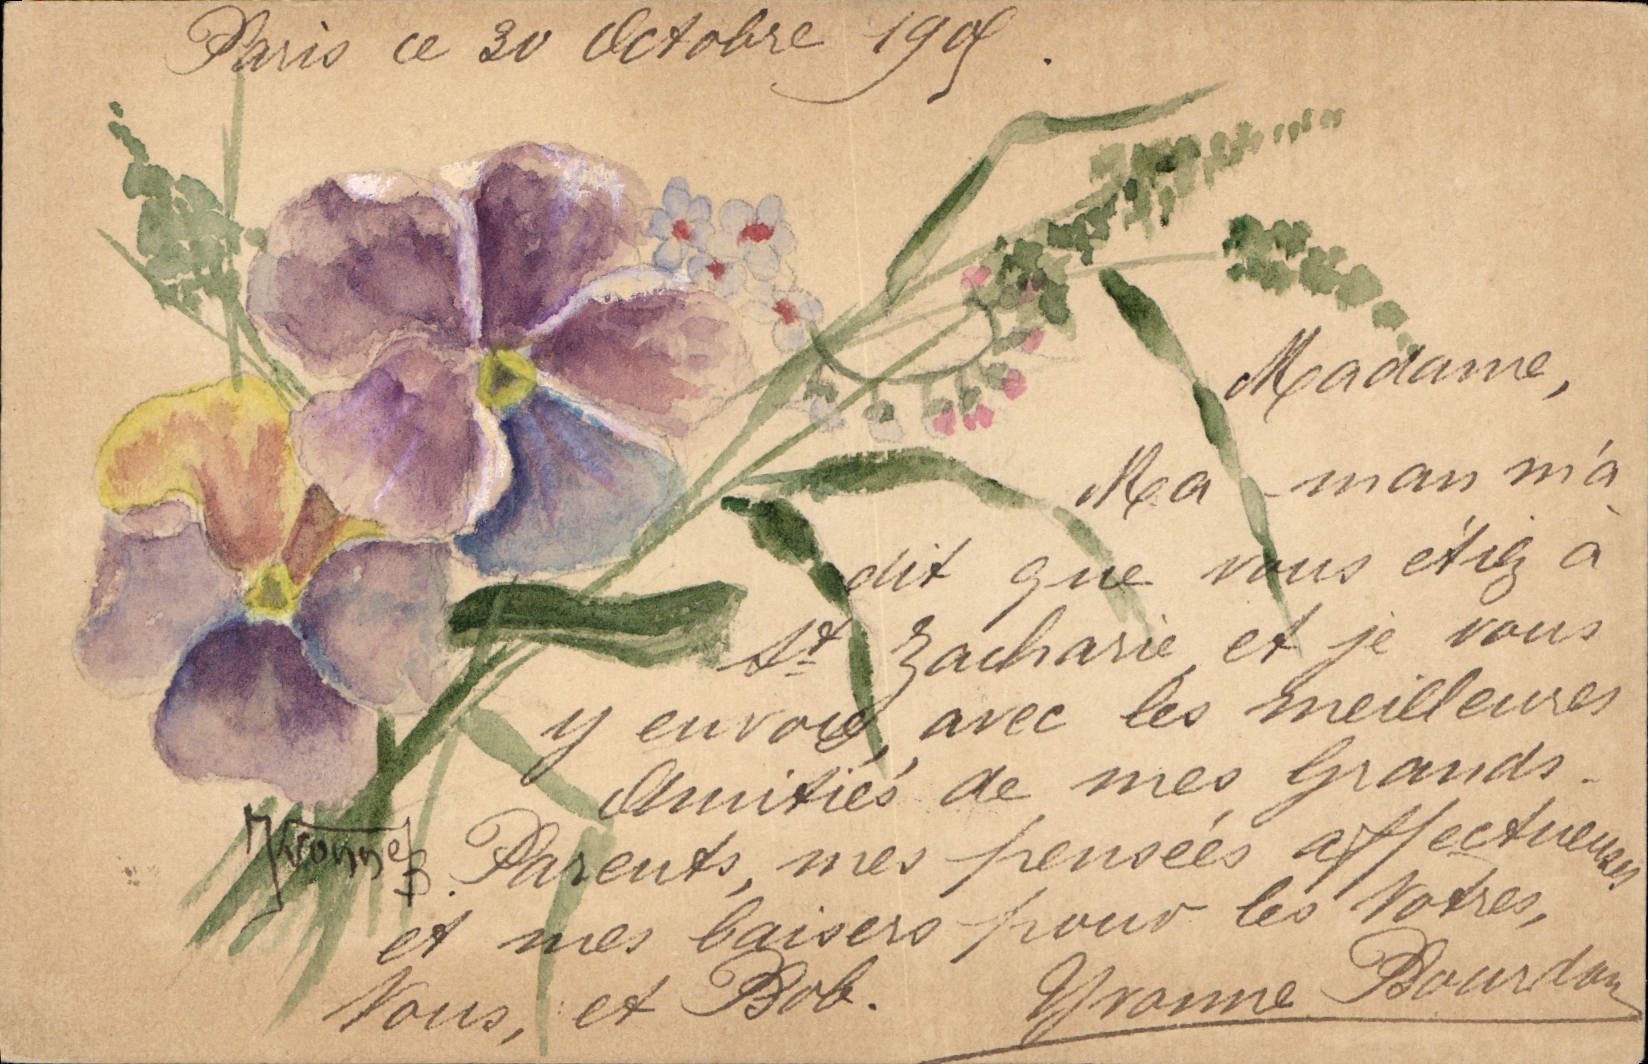 Paris ce 30 Octobre
Madame,
Ma-man m'a
dit que vous étiez à
St Zacharie, et je vous
y envoie, avec les meilleures
Amitiés de mes Grands-
Parents, mes pensées affectueuses
et mes baisers pour les Votres,
Vous, et Bob.
Yvonne Bourdon
Yvonne B.